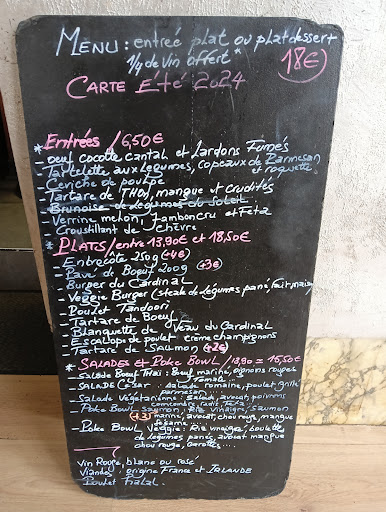 MENU: entrée plat ou plat dessert
1/4 de vin offert *
18€
CARTE Été 2024
* Entrées / 6,50€
- oeuf cocotte cantal et Lardons Fumés
- Tartelette aux Legumes, copeaux de Parmesan
et roquette
- Ceviche de poulpe
- Tartare de THON, mangue et crudités
- Brunoise de Legumes du soleil
- Verrine melon, Jambon cru et Feta
- Croustillant de chèvre
* PLATS / entre 13,90€ et 18,50€
- Entrecôte 250g (+4€)
- Pavé de Boeuf 200g (+3€)
- Burger du Cardinal
- Veggie Burger (steak de Legumes pané, fait maison
- Poulet Tandoori
- Tartare de Boeuf
- Blanquette de Veau du Cardinal
- Escalope de poulet crème champignons
- Tartare de SALMON (+2€)
* SALADES et Poke Bowl / 13,90 = 16,50€
- Salade Boeuf Thaï: Boeuf mariné, oignons rouges
Tomate
- SALADE César: salade romaine, poulet grillé
parmesan
- Salade Végétarienne: Salade, avocat, poivrons
concombre, radis, Feta
- Poke Bowl Saumon: Riz vinaigré, saumon
(+3) mariné, avocat, chou rouge, mangue
sesame
- Poke Bowl Veggie: Riz vinaigré, boulette
de legumes panés, avocat mangue
chou rouge, carottes
Vin Rouge, blanc ou rosé
Viandes: origine France et IRLANDE
Poulet halal.